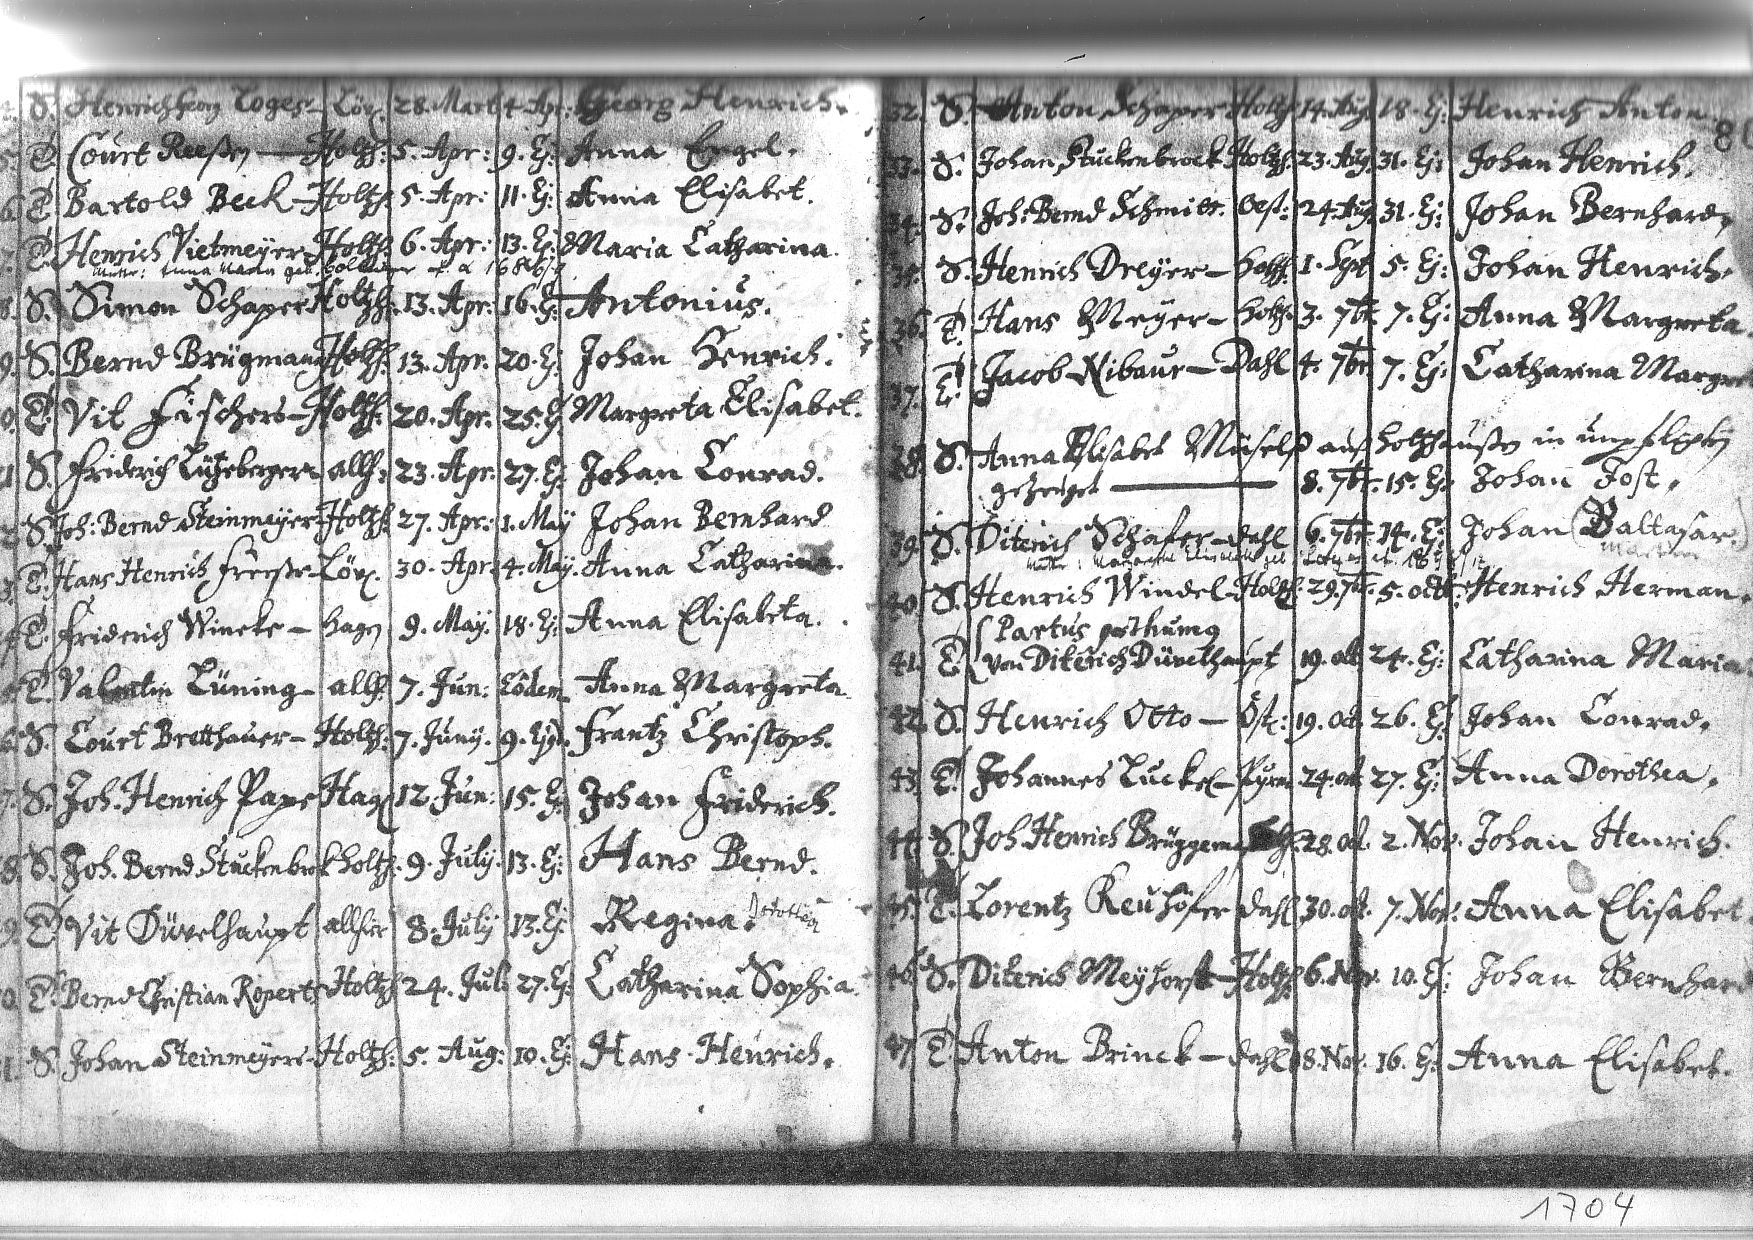 S. Henrich Georg Loges – Löw. 28. Mart 4. Apr: Georg Henrich.
T. Court Reeßen – Holtzh: 5. Apr: 9. Ej: Anna Engel.
T. Bartold Beck – Holtzh. 5. Apr: 11. Ej: Anna Elisabet.
T. Henrich Vietmeyer – Holtzh. 6. Apr: 13. Ej: Maria Catharina.
Mutter: Anna Maria geb.
8. S. Simon Schaper Holtzh. 13. Apr: 16. Ej: Antonius.
9. S. Bernd Brügman Holtzh. 13. Apr. 20. Ej: Johan Henrich.
0. T. Vit Fischers – Holtzh: 20. Apr. 25. Ej Margreta Elisabet.
1 S. Friderich allh: 23. Apr. 27. Ej: Johan Conrad.
2 S. Joh: Bernd Steinmeyer Holtzh. 27. Apr: 1. May Johan Bernhard
3. T. Hans Henrich – Löw. 30. Apr. 4. May. Anna Catharina.
T. Friderich Wineke – Hagen 9. May. 18. Ej: Anna Elisabeta.
T. Valentin Lüning – allh. 7. Jun: Eôdem Anna Margreta
6. S. Court Bretthauer – Holtzh: 7. Juny. 9. Ejd. Frantz Christoph.
7. S. Joh. Henrich Pape Hag. 12. Jun: 15. Ej: Johan Friderich.
8. S. Joh. Bernd Stuckenbrok holtzh. 9. July. 13. Ej: Hans Bernd.
9. T. Vit Düvelhaupt allhier 8. July 13. Ej: Regina.
0. T. Bernd Christian Röperts Holtzh 24. Jul: 27. Ej: Catharina Sophia.
1. S. Johan Steinmeyers – Holtzh: 5. Aug: 10. Ej: Hans Henrich.
80
32. S. Anton Schaper Holtzh 14. Aug. 18. Ej: Henrich Anton.
33. S. Johan Stuckenbrock Holtzh. 23. Aug. 31. Ej: Johan Henrich.
34. S. Joh: Bernd Schmitt. Oest: 24. Aug. 31. Ej: Johan Bernhard.
35. S. Henrich Dreyer – holtzh. 1. Sept 5. Ej: Johan Henrich.
36. T. Hans Meyer – holtzh. 3. 7br. 7. Ej: Anna Margreta.
37. T. Jacob Nibaur – Dahl 4. 7br. 7. Ej: Catharina Margret
38. S. Anna Elisabet auß holtzhaußen in
gezeuget — 8. 7br. 15. Ej: Johan Jost.
39. S. Diterich Schafer – dahl 6. 7br. 14. Ej: Johan (Baltasar.)
Mutter:
40. S. Henrich Windel – Holtzh. 29. 7br. 5. octb: Henrich Herman.
Partus posthumg
41. T. von Diterich Düvelhaupt 19. oct 24. Ej: Catharina Maria.
42. S. Henrich Otto – Öst: 19. Oct. 26. Ej: Johan Conrad.
43. T. Johannes Luckel – Pyrm 24. oct 27. Ej: Anna Dorothea.
44. S. Joh. Henrich Brüggeman 28. Oct. 2. Nov. Johan Henrich.
45. T. Lorentz Keuhöfer dahl 30. oct. 7. Nov: Anna Elisabet
46. S. Diterich Meyhorst – Holtzh. 6. Nov. 10. Ej: Johan Bernhard
47 T. Anton Brinck – dahl 8. Nov. 16. Ej: Anna Elisabet.
1704